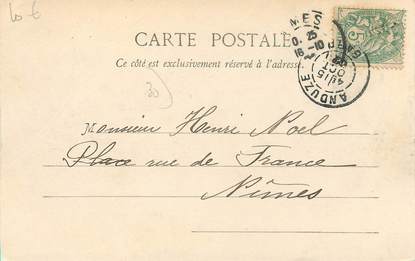 10 €
CARTE POSTALE
Ce côté est exclusivement réservé à l'adresse.
30
ANDUZE
15
OCT
5
Monsieur Henri Noel
Place rue de France
Nîmes